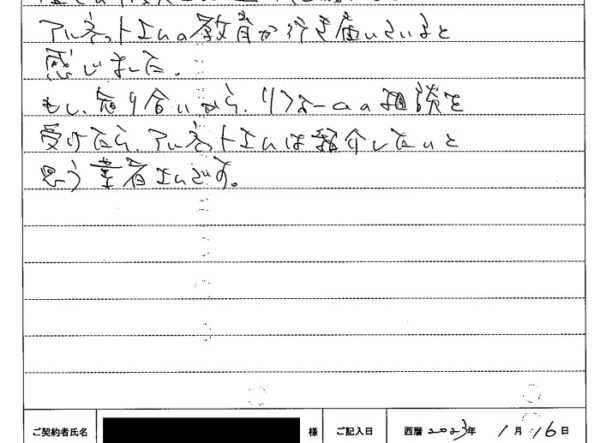 アルネットさんの教育が行き届いているなと
感じました。
もし、知り合いから、リフォームの相談を
受けたら、アルネットさんは紹介したいと
思う業者さんです。
ご契約者氏名 様 ご記入日 西暦 2023年 1月 16日